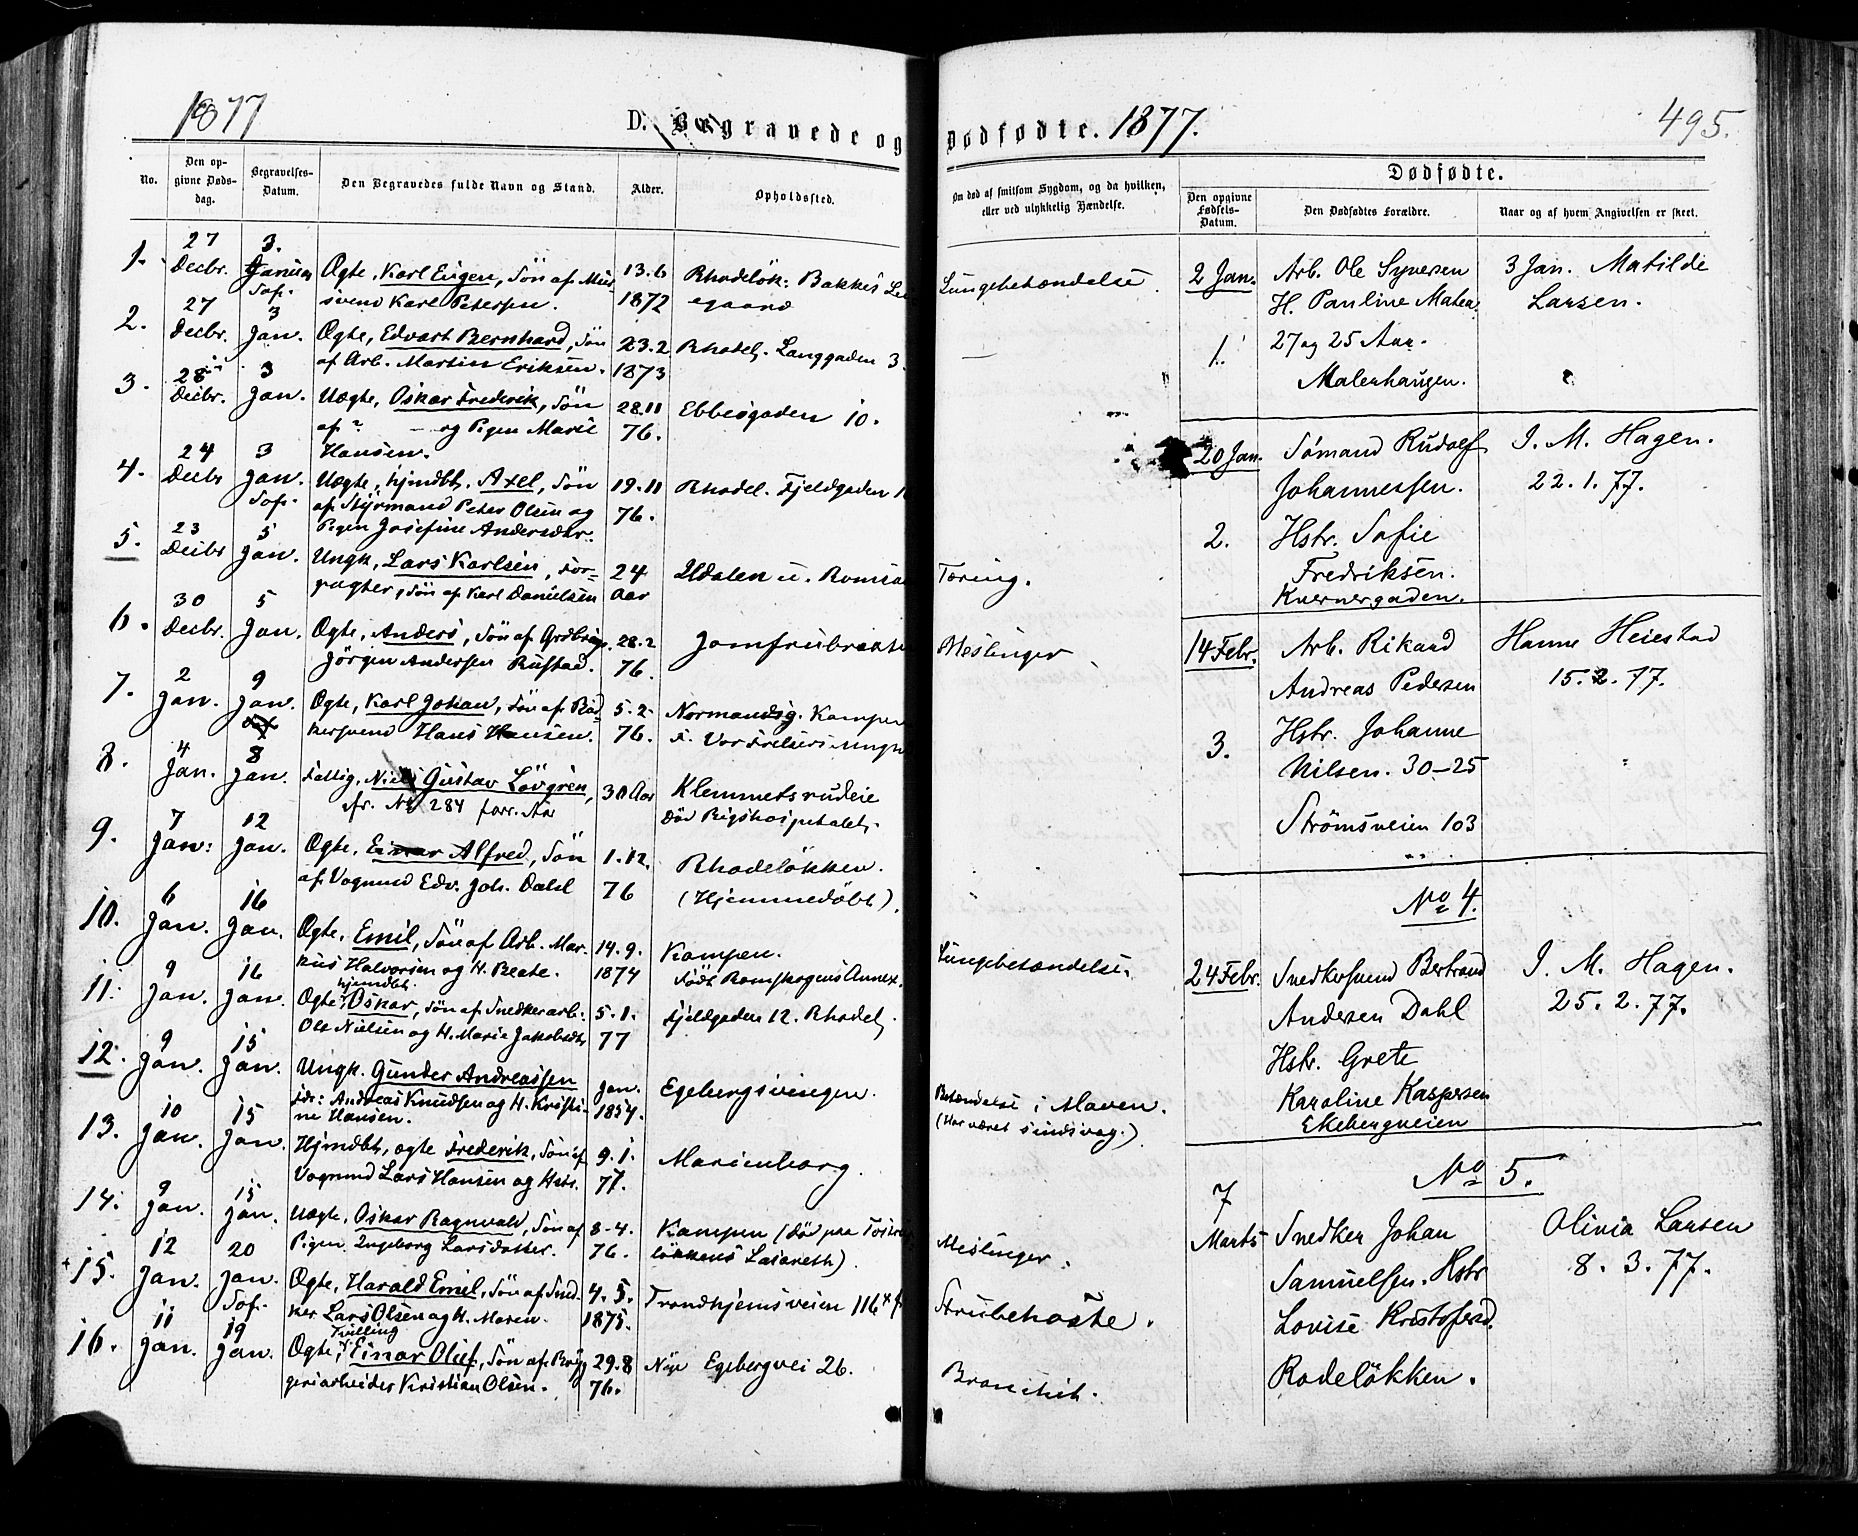 1877
D. Begravede og
No.
Den opgivne Dødsdag.
Begravelses-Datum.
Den Begravedes fulde Navn og Stand.
Alder.
Opholdssted.
1. 27 Decbr. 3. Januar Sof. Ægte, Karl Eugen, Søn af Mursvend Karl Petersen. 13.6 1872 Rhodeløk: Bakkes Løegaard
2. 27 Decbr. 3 Jan. Ægte, Edvart Bernhard, Søn af Arb. Martin Eriksen. 23.2 1873 Rhodel. Langgaden 3.
3. 28 Decbr. 3 Jan. Uægte, Oskar Frederik, Søn af ? — og Pigen Marie Hansen. 28.11 76. Ebbesgaden 10.
4. 24 Decbr 3 Jan. Sof. Uægte, hjmdbt, Axel, Søn af Styrmand Peter Olsen og Pigen Josefine Andersdtr. 19.11 76. Rhodel. Fjeldgaden 1
5. 23 Decbr 5 Jan. Ungk, Lars Karlsen, Forpagter, Søn af Karl Danielsen 24 Aar Udalen u.
6. 30 Decbr. 5 Jan. Ægte, Anders, Søn af Jørgen Andersen Rustad. 28.2 76. Jomfrubraaten
7. 2 Jan. 9 Jan. Ægte, Karl Johan, Søn af Bødkersvend Hans Hansen. 5.2 76. Normandsg. Kampen F. Vor Frelsers
8. 4 Jan. 8 Jan. Fattig, Niels Gustav Løvgren, fr. No 284 forr. Aar 30 Aar Klemmetsrudeie Død Rigshospitalet.
9. 7 Jan: 12 Jan. Ægte, Einar Alfred, Søn af Vognmd Edv. Joh. Dahl 1.12. 76 Rhodeløkken. (Hjemmedøbt).
10. 6 Jan. 16 Jan. Ægte, Emil, Søn af Arb. Markus Halvorsen og H. Beate. 14.9. 1874 Kampen. Født Romskogens Annex.
11. 9 Jan. 16 Jan. Ægte, hjemdbt. Oskar, Søn af Snedkerarb. Ole Nielsen og H. Marie Jakobsdtr 5.1. 77 Fjeldgaden 12. Rhodel.
12. 9 Jan. 15 Jan. Ungk. Gunder Andreassen For: Andreas Knudsen og H. Kristine Hansen. Jan. 1857. Egebergsvingen.
13. 10 Jan. 15 Jan. Hjmdbt, ægte Frederik, Søn af Vognmd Lars Hansen og Hstr. 9.1. 77. Marienborg.
14. 9 Jan. 15 Jan. Uægte, Oskar Ragnvald, Søn af Pigen Ingeborg Larsdatter. 8-4. 76. Kampen (død paa løkkens Lasareth).
15. 12 Jan. 20 Jan. Sof. Ægte, Harald Emil, Søn af Snedker Lars Olsen og H. Maren. 4.5. 1875. Trondhjemsveien 116
16. 11 Jan. 19 Jan. Ægte, Tvilling Einar Olief, Søn af Bryggeriarbeider Kristian Olsen. 29.8 76. Nye Egebergvei 26.
Dødfødte. 1877.
495.
Om død af smitsom Sygdom, og da hvilken, eller ved ulykkelig Hændelse.
Dødfødte.
Den opgivne Fødsels-Datum.
Den Dødfødtes Forældre.
Naar og af hvem Angivelsen er skeet.
Lungebetændelse.
—
Tæring.
Meslinger
Lungebetændelse
Betændelse i Maven.
(Har været sindsvag.)
Meslinger.
Strubehoste.
Bronchit.
2 Jan. Arb. Ole Syversen 3 Jan. Matilde
H. Pauline Larsen.
1. 27 og 25 Aar.
Malerhaugen.
20 Jan. Sømand Rudolf J. M. Hagen.
Johannessen. 22.1.77.
2. Hstr. Sofie
Fredriksen.
Kværnergaden.
14 Febr. Arb. Rikard Hanne Heiestad
Andreas Pedersen 15.2.77.
3. Hstr. Johanne
Nilsen. 30-25
Strømsveien 103
No 4.
24 Febr. Snedkersvend Bertrand J. M. Hagen.
Andersen Dahl 25.2.77.
Hstr. Grete
Karoline Kaspersen
Ekebergveien
No 5.
7 Marts Snedker Johan Olivia Larsen
Samuelsen. Hstr 8.3.77.
Lovise Kristofersd.
Rodeløkken.